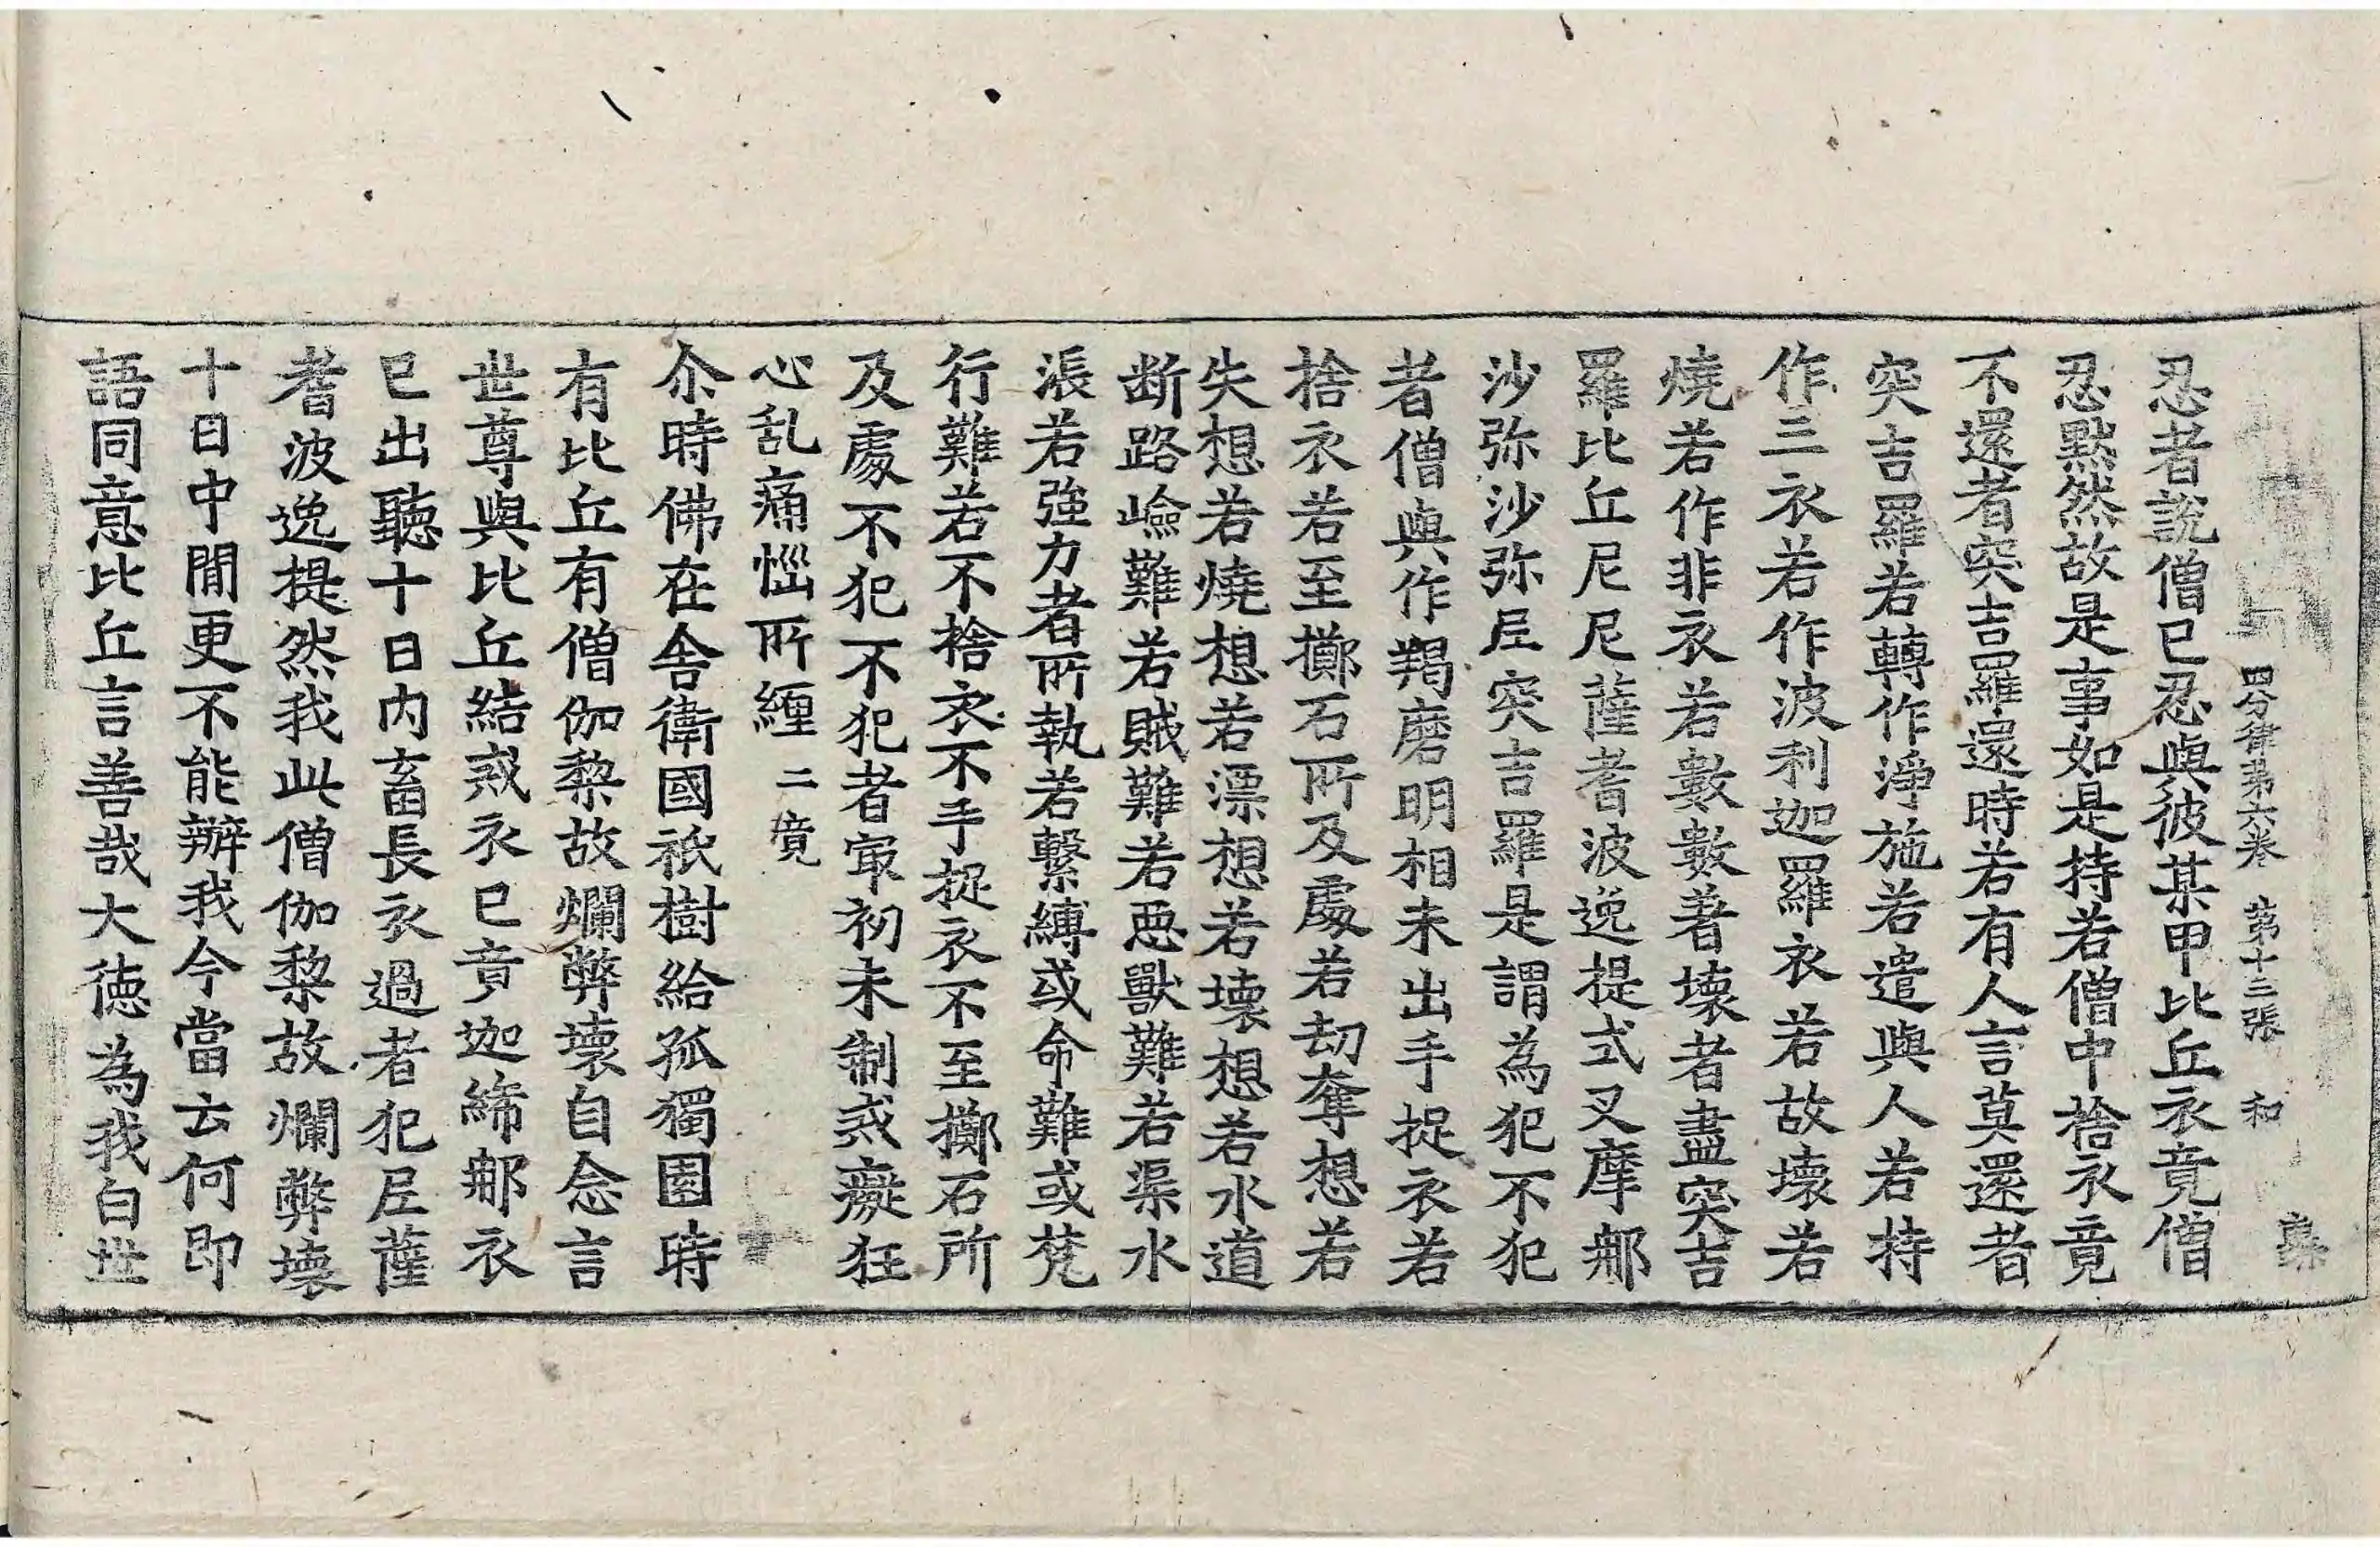 四分律第六卷 第十三張 和
忍者說僧已忍與彼某甲比丘衣竟僧
忍黙然故是事如是持若僧中捨衣竟
不還者突吉羅還時若有人言莫還者
突吉羅若轉作淨施若遣與人若持
作三衣若作波利迦羅衣若故壞若
燒若作非衣若數數著壞者盡突吉
羅比丘尼尼薩耆波逸提式叉摩那
沙弥沙弥尼突吉羅是謂為犯不犯
者僧與作羯磨明相未出手捉衣若
捨衣若至擲石所及處若劫奪想若
失想若燒想若漂想若壞想若水道
断路嶮難若賊難若惡獸難若渠水
漲若強力者所執若繫縛或命難或梵
行難若不捨衣不手捉衣不至擲石所
及處不犯不犯者㝡初未制戒癡狂
心乱痛惱所纏 二竟
尒時佛在舍衛國祇樹給孤獨園時
有比丘有僧伽黎故爛弊壞自念言
世尊與比丘結戒衣已竟迦絺那衣
已出聽十日內畜長衣過者犯尼薩
耆波逸提然我此僧伽黎故爛弊壞
十日中閒更不能辦我今當云何即
語同意比丘言善哉大徳為我白世